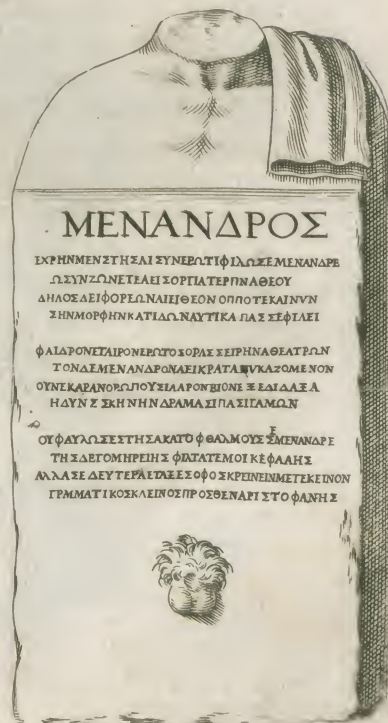 ΜΕΝΑΝΔΡΟΣ
ΕΧΡΗΝΜΕΝΣΤΗΣΑΙΣΥΝΕΡΩΤΙΦΙΛΩΣΕΜΕΝΑΝΔΡΕ
ΩΣΥΝΖΩΝΕΤΕΛΕΙΣΟΡΓΙΑΤΕΡΠΝΑΘΕΟΥ
ΔΗΛΟΣΔΕΙΦΟΡΕΩΝΑΙΕΙΘΕΟΝΟΠΠΟΤΕΚΑΙΝΥΝ
ΣΗΝΜΟΡΦΗΝΚΑΤΙΔΩΝΑΥΤΙΚΑΠΑΣΣΕΦΙΛΕΙ
ΦΑΙΔΡΟΝΕΤΑΙΡΟΝΕΡΩΤΟΣΟΡΑΣΣΕΙΡΗΝΑΘΕΑΤΡΩΝ
ΤΟΝΔΕΜΕΝΑΝΔΡΟΝΑΕΙΚΡΑΤΑΠΥΚΑΖΟΜΕΝΟΝ
ΟΥΝΕΚΑΡΑΝΟΡΩΠΟΥΣΙΛΑΡΟΝΒΙΟΝΕΞΕΔΙΔΑΞΑ
ΗΔΥΝΣΣΚΗΝΗΝΔΡΑΜΑΣΙΠΑΣΙΓΑΜΩΝ
ΟΥΦΑΥΛΩΣΕΣΤΗΣΑΚΑΤΟΦΘΑΛΜΟΥΣΣΕΜΕΝΑΝΔΡΕ
ΤΗΣΔΕΓΟΜΗΡΕΙΗΣΦΙΛΤΑΤΕΜΟΙΚΕΦΑΛΗΣ
ΑΛΛΑΣΕΔΕΥΤΕΡΑΕΤΑΞΕΣΟΦΟΣΚΡΕΙΝΕΙΝΜΕΤΕΚΕΙΝΟΝ
ΓΡΜΜΑΤΙΚΟΣΚΛΕΙΝΟΣΠΡΟΣΘΕΝΑΡΙΣΤΟΦΑΝΗΣ